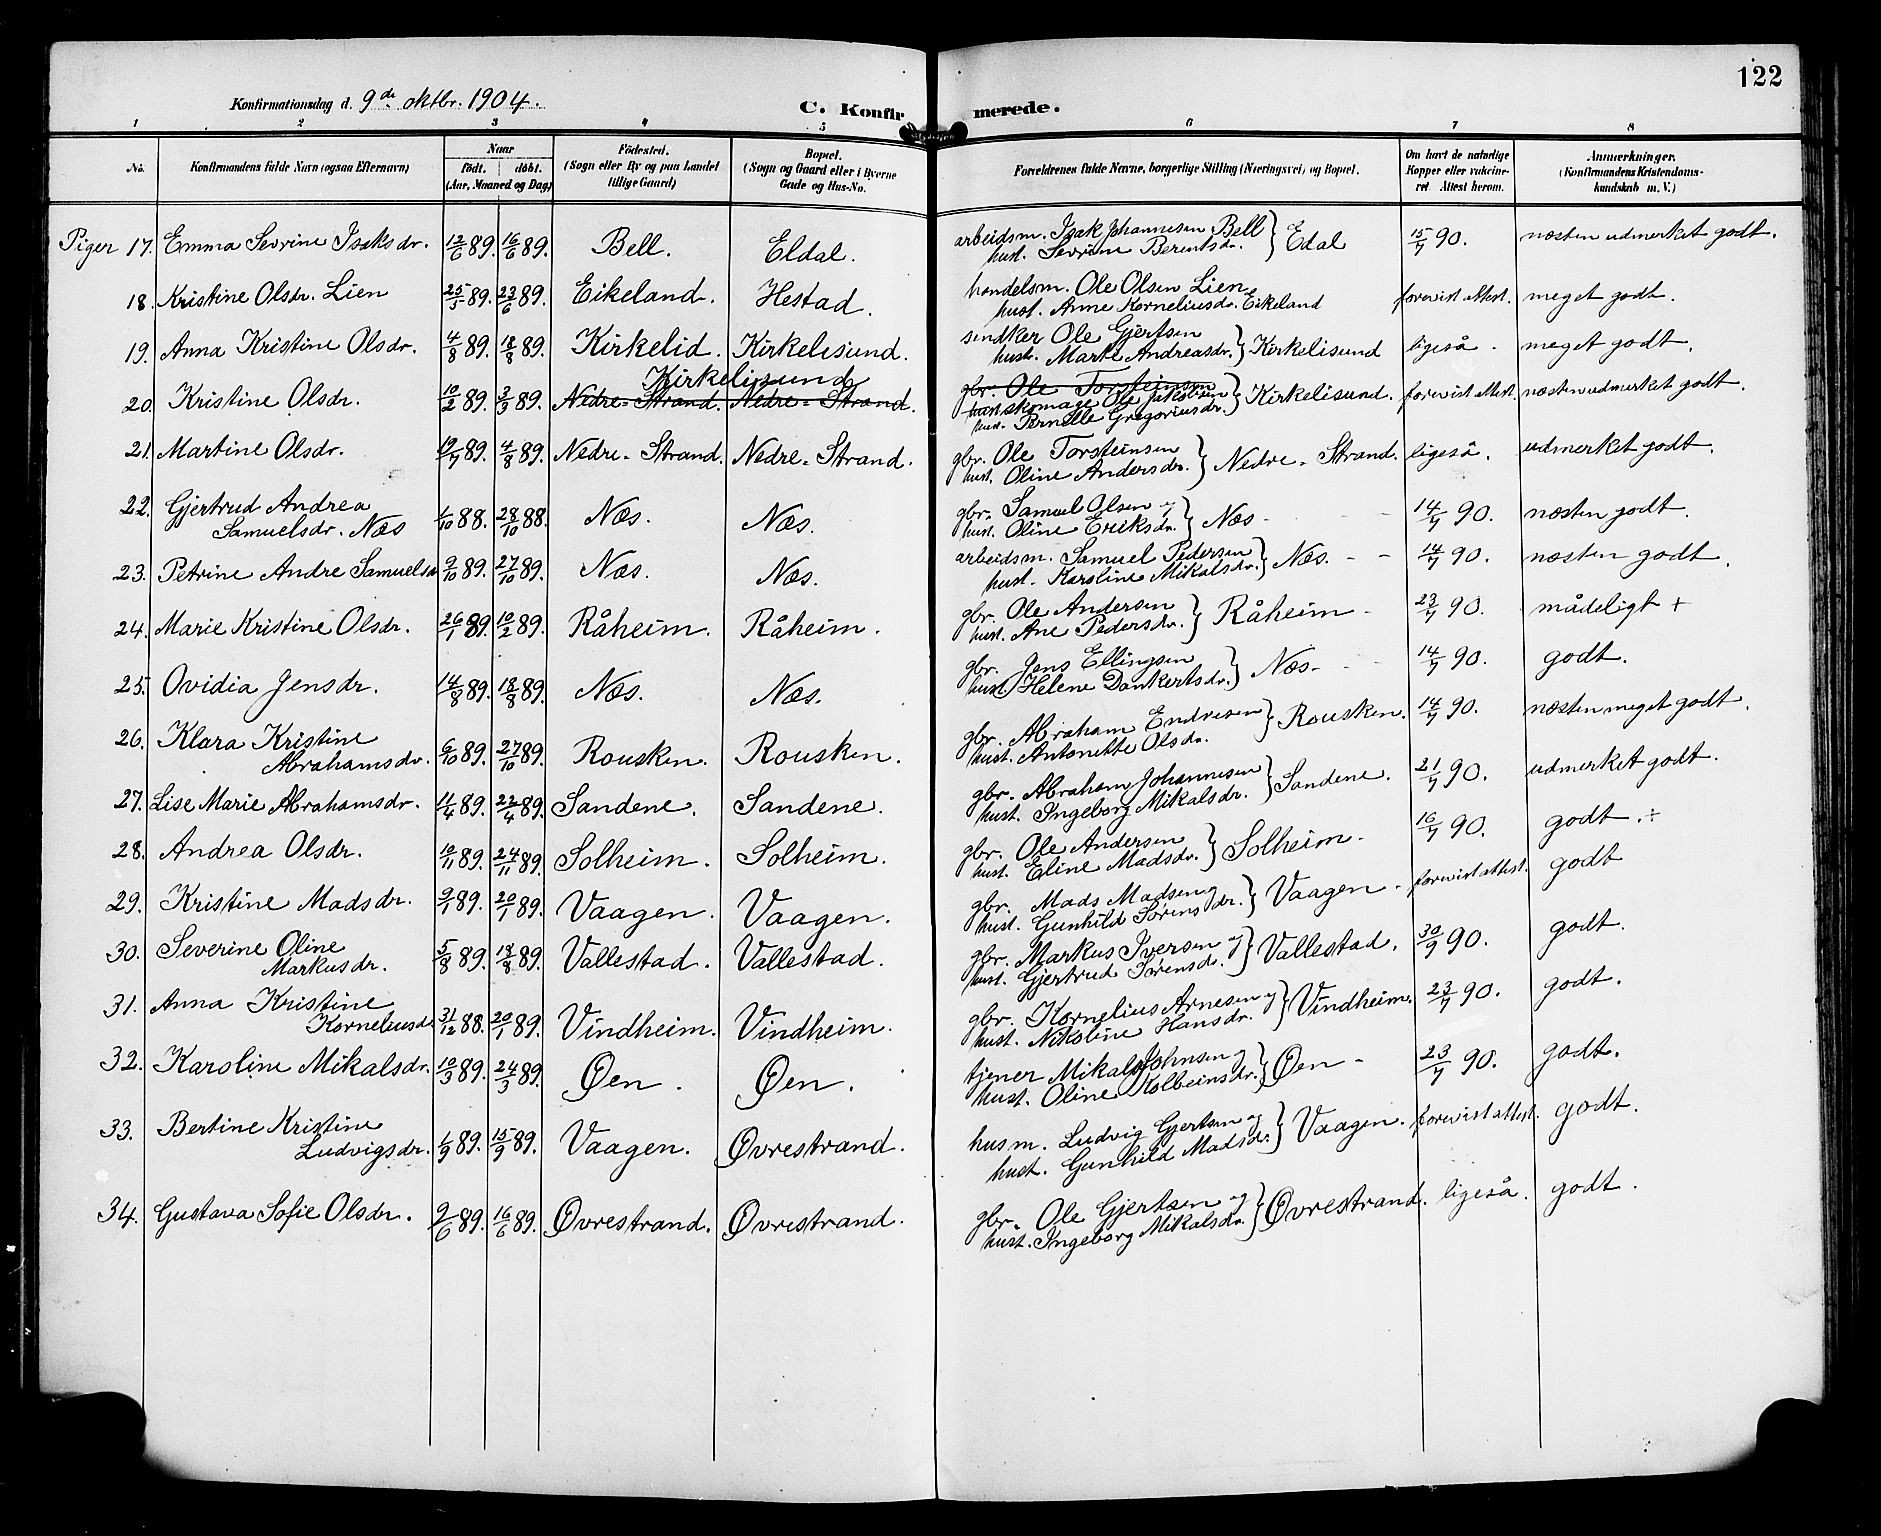 122
Konfirmationsdag d. 9de oktbr. 1904.
C. Konfirmerede.
1 2 3 4 5 6 7 8
No. Konfirmandens fulde Navn (ogsaa Efternavn) Naar födt. döbt. (Aar, Maaned og Dag) Födested. (Sogn eller By og paa Landet tillige Gaard) Bopæl. (Sogn og Gaard eller i Byerne Gade og Hus-No. Forældrenes fulde Navne, borgerlige Stilling (Næringsvei) og Bopæl. Om havt de naturlige Kopper eller vaccineret Attest herom. Anmærkninger. (Konfirmandens Kristendomskundskab m. V.)
Piger 17. Emma Sevrine Isaksdr. 12/6 89. 16/6 89. Bell. Eldal. arbeidsm. Isak Johannesen Bell
hust. Sevrine Berentsdr. } Edal 15/7 90. næsten udmerket godt.
18. Kristine Olsdr. Lien 25/5 89. 23/6 89. Eikeland. Hestad. handelsm. Ole Olsen Lien
hust. Anne Korneliusdr. Eikeland forevist attest. meget godt.
19. Anna Kristine Olsdr. 4/8 89. 18/8 89. Kirkelid. Kirkelisund. snedker Ole Gjertsen
hust. Marte Andreasdr. } Kirkelisund ligeså. meget godt.
Kirkelisund
20. Kristine Olsdr. 10/2 89. 3/3 89. Nedre-Strand. Nedre-Strand. gbr. Ole Torsteinsen
hust. skomager Ole Jakobsen
hust. Pernille Gregoriusdr. } Kirkelisund. forevist attest. næsten udmerket godt.
21. Martine Olsdr. 19/7 89. 4/8 89. Nedre-Strand. Nedre-Strand. gbr. Ole Torsteinsen
hust. Oline Andersdr. } Nedre-Strand. ligeså. udmerket godt.
22. Gjertrud Andrea
Samuelsdr. Næs 1/10 88. 28/10 88. Næs. Næs. gbr. Samuel Olsen og
hust. Oline Eriksdr. } Næs - 14/7 90. næsten godt.
23. Petrine Andre Samuelsdr 9/10 89. 27/10 89. Næs. Næs. arbeidsm. Samuel Pedersen
hust. Karoline Mikalsdr. } Næs. - - 14/7 90. næsten godt.
24. Marie Kristine Olsdr. 26/1 89. 10/2 89. Råheim. Råheim. gbr. Ole Andersen
hust. Ane Pedersdr. } Råheim - 23/7 90. mådeligt +
25. Ovidia Jensdr. 14/8 89. 18/8 89. Næs. Næs. gbr. Jens Ellingsen
hust. Helene Dankertsdr. } Næs - 14/7 90. godt.
26. Klara Kristine
Abrahamsdr. 6/10 89. 27/10 89. Rousken. Rousken. gbr. Abraham Endresen
hust. Antonette Olsdr. } Rousken. 14/7 90. næsten meget godt.
27. Lise Marie Abrahamsdr. 11/4 89. 22/4 89. Sandene. Sandene. gbr. Abraham Johannesen
hust. Ingeborg Mikalsdr. } Sandene. 21/7 90. udmerket godt.
28. Andrea Olsdr. 10/11 89. 24/11 89. Solheim. Solheim. gbr. Ole Andersen
hust. Eline Madsdr. } Solheim - 16/7 90. godt. ÷
29. Kristine Madsdr. 9/1 89. 20/1 89. Vaagen. Vaagen. gbr. Mads Madsen og
hust. Gunhild Sørensdr. } Vaagen - forevist attest. godt
30. Severine Oline
Markusdr. 5/8 89. 18/8 89. Vallestad. Vallestad. gbr. Markus Iversen og
hust. Gjertrud Sørensdr. } Vallestad. 30/9 90. godt.
31. Anna Kristine
Korneliusdr 31/12 88. 20/1 89. Vindheim. Vindheim. gbr. Kornelius Arnesen og
hust. Nikoline Hansdr. } Vindheim. 23/7 90. godt.
32. Karoline Mikalsdr. 10/3 89. 24/3 89. Øen. Øen. tjener Mikal Johnsen og
hust. Oline Kolbeinsdr. } Øen - 23/7 90. godt.
33. Bertine Kristine
Ludvigsdr. 1/9 89. 15/9 89. Vaagen. Øvrestrand. husm. Ludvig Gjertsen og
hust. Gunhild Madsdr. } Vaagen. forevist attest. godt.
34. Gustava Sofie Olsdr. 9/6 89. 16/6 89. Øvrestrand. Øvrestrand. gbr. Ole Gjertsen og
hust. Ingeborg Mikalsdr. } Øvrestrand. ligeså. godt.